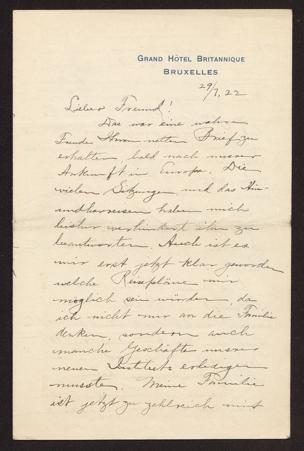 GRAND HÔTEL BRITANNIQUE
BRUXELLES
29/7, 22
Lieber Freund!
Das war eine wahre
Freude Ihren netten Brief zu
erhalten, bald nach unserer
Ankunft in Europa. Die
vielen Sitzungen und das Hin-
undherreisen haben mich
bisher verhindert ihn zu
beantworten. Auch ist es
mir erst jetzt klar geworden
welche Reisepläne mir
möglich sein würden, da
ich nicht nur an die Familie
denken, sondern auch
manche Geschäfte unseres
neuen Instituts erledigen
mussten. Meine Familie
ist jetzt zu zahlreich mit